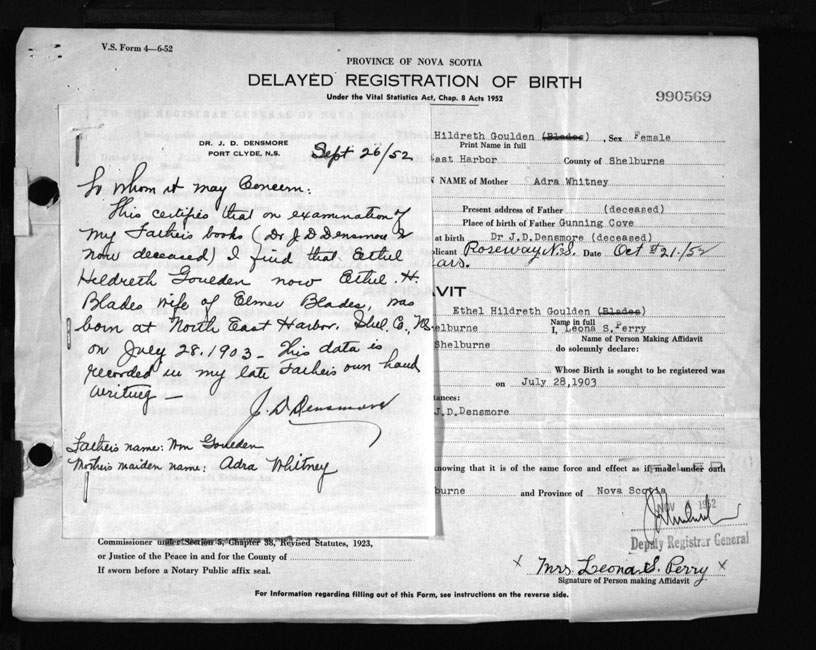 V.S. Form 4—6-52
PROVINCE OF NOVA SCOTIA
DELAYED REGISTRATION OF BIRTH
Under the Vital Statistics Act, Chap. 8 Acts 1952
990569
DR. J. D. DENSMORE
PORT CLYDE, N.S.
Sept 26/52
To whom it may Concern:
This certifies that on examination of
my Father's books (Dr J D Densmore
now deceased) I find that Ethel
Hildreth Goulden now Ethel. H.
Blades wife of Elmer Blades, was
born at North East Harbor, Shel. Co., NS.
on July 28. 1903 - This data is
recorded in my late Father's own hand
writing —
J. D. Densmore
Father's name: Wm Goulden
Mother's maiden name: Adra Whitney
Hildreth Goulden (Blades) , Sex Female
Print Name in full
East Harbor County of Shelburne
NAME of Mother Adra Whitney
Present address of Father (deceased)
Place of birth of Father Gunning Cove
at birth Dr J.D.Densmore (deceased)
plicant Roseway N.S. Date Oct 21/52
ears.
VIT
Ethel Hildreth Goulden (Blades)
Name in full
elburne I, Leona S. Perry
Name of Person Making Affidavit
Shelburne do solemnly declare:
Whose Birth is sought to be registered was
on July 28,1903
tances:
J.D.Densmore
nowing that it is of the same force and effect as if made under oath
burne and Province of Nova Scotia
NOV 1952
Deputy Registrar General
Commissioner under Section 5, Chapter 38, Revised Statutes, 1923,
or Justice of the Peace in and for the County of
If sworn before a Notary Public affix seal.
x Mrs. Leona S. Perry x
Signature of Person making Affidavit
For Information regarding filling out of this Form, see instructions on the reverse side.